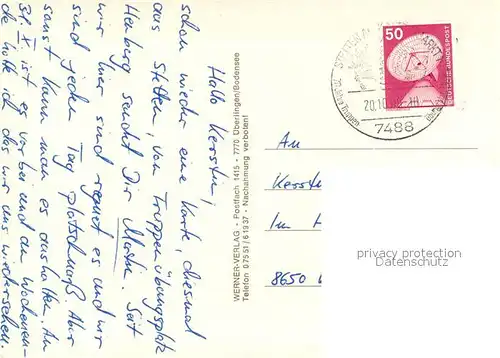 Hallo Kerstin,
schon wieder eine Karte, diesmal
aus Stetten, vom Truppenübungsplatz
Heuberg sendet Dir Martin. Seit
wir hier sind regnet es und wir
sind jeden Tag platschnaß. Aber
sonst kann man es aushalten. Am
31. X. ist es vorbei und am Wochenen-
de hoffe ich das wir uns wiedersehen.
WERNER-VERLAG - Postfach 1415 - 7770 Überlingen/Bodensee
Telefon 07551/61937 - Nachahmung verboten!
50
DEUTSCHE BUNDESPOST
20.10.
7488
An
Kerst
Im H
8650
privacy protection
veikkos.com